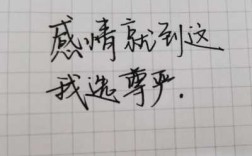 感情就到这
我选尊严.